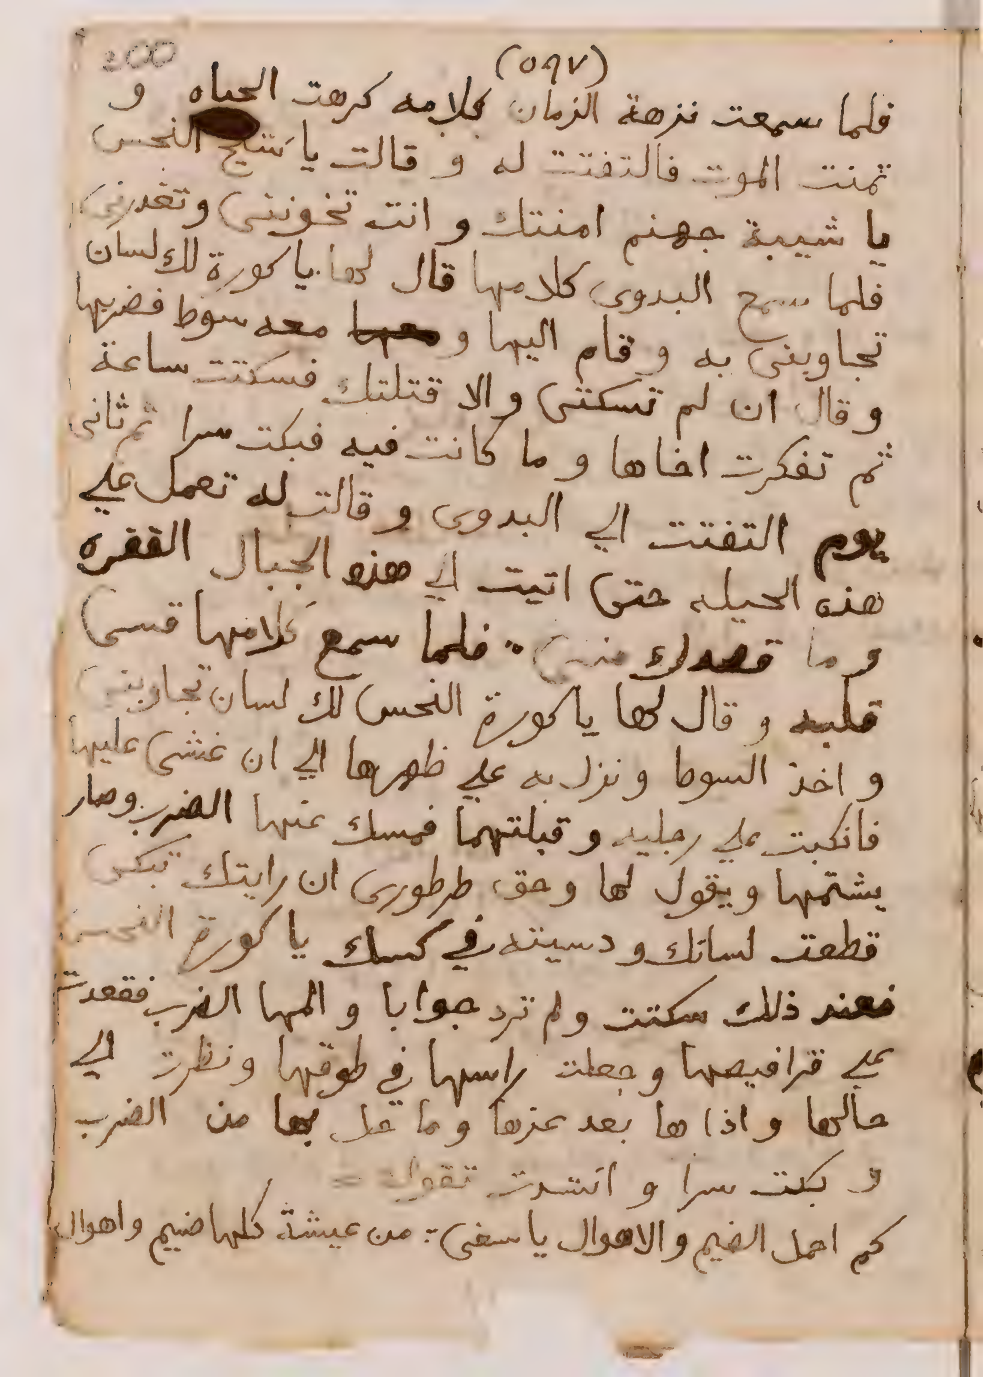 200
(٥٩٧)
فلما سمعت نزهة الزمان كلامه كرهت الحياه و
تمنت الموت فالتفتت له و قالت يا شيخ النحس
يا شيبة جهنم امنتك و انت تخوننى و تغدرنى
فلما سمع البدوى كلامها قال لها يا كورة لك لسان
تجاوبنى به و قام اليها و معه سوط فضربها
و قال ان لم تسكتى و الا قتلتك فسكتت ساعة
ثم تفكرت اخاها و ما كانت فيه فبكت سرا ثم ثانى
يوم التفتت الي البدوى و قالت له تعمل علي
هذه الحيله حتى اتيت الي هذه الجبال القفره
و ما قصدك منى فلما سمع كلامها قسى
قلبه و قال لها يا كورة النحس لك لسان تجاوبنى
و اخذ السوط و نزل به علي ظهرها الي ان غشى عليها
فانكبت علي رجليه و قبلتهما فمسك عنها الضرب وصار
يشتمها و يقول لها و حق طرطورى ان رايتك تبكى
قطعت لسانك و دسيته في كسك يا كورة النحس
فعند ذلك سكتت و لم ترد جوابا و المها الضرب فقعدت
علي قرافيصها و جعلت راسها في طوقها و نظرت الي
حالها و اذا ها بعد عزها و ما حل بها من الضرب
و بكت سرا و انشدت تقول =
كم احمل الضيم و الاهوال يا سفى : من عيشة كلها ضيم و اهوال